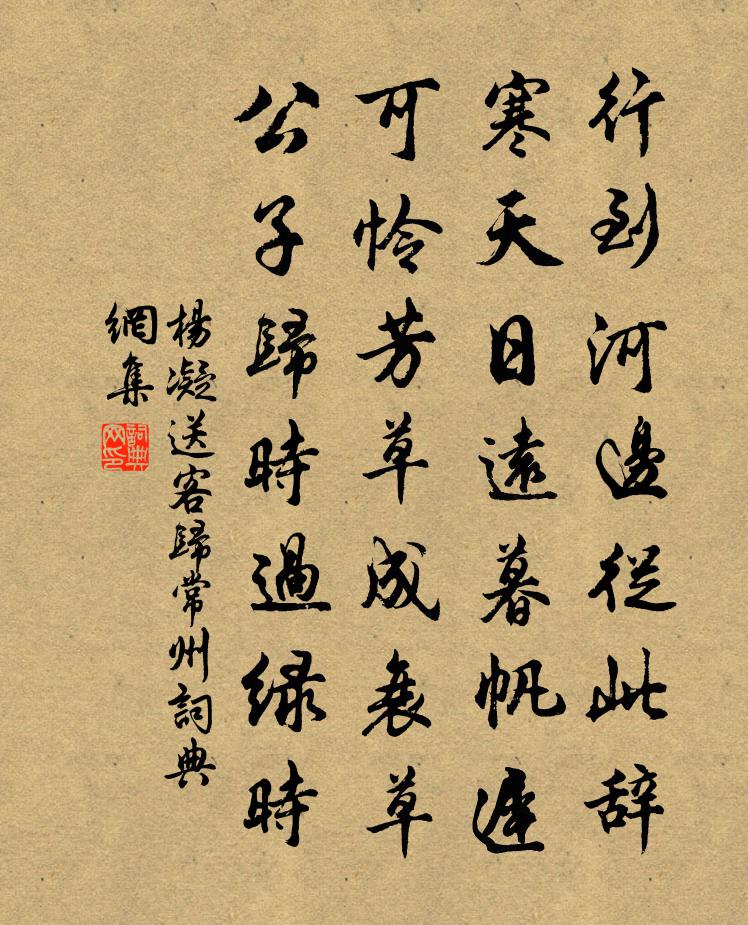 行到河邊從此辞
寒天日遠暮帆遲
可怜芳草成衰草
公子歸時過绿時
楊凝送客歸常州詞典
網集
詞典网印